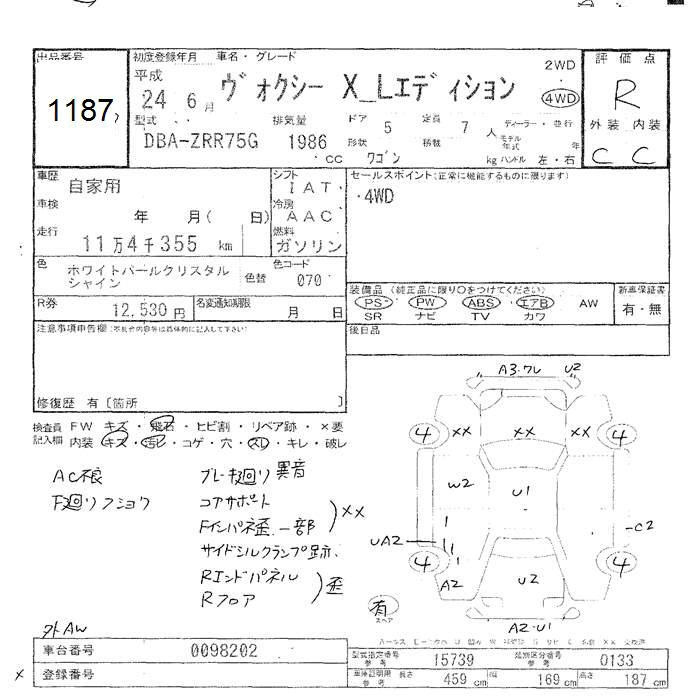 出品番号
1187
初度登録年月 車名・グレード
平成
24 6月
ヴォクシー X_Lエディション
2WD
4WD
評価点
R
外装 内装
C C
型式
DBA-ZRR75G
排気量
1986
cc
ドア 5
形状 ワゴン
定員 7 人
積載 kg
ディーラー・並行
モデル年式 年
ハンドル 左・右
車歴 自家用
シフト
IAT
セールスポイント(正常に機能するものに限ります)
・4WD
車検 年 月( 日)
冷房
AAC
走行 11万4千355 km
燃料
ガソリン
色 ホワイトパールクリスタル
シャイン
色替
色コード
070
装備品 (純正品に限り〇をつけてください)
PS PW ABS エアB AW
SR ナビ TV カワ
新車保証書
有・無
R券 12,530円
名変通知期限 月 日
注意事項申告欄
後日品
修復歴 有〔箇所 〕
検査員 FW キズ・飛石・ヒビ割・リペア跡・×要
記入欄 内装 キズ・汚レ・コゲ・穴・スレ・キレ・破レ
AC不良
F廻りフショク
ブレーキ廻り異音
コアサポート
Fインパネ歪、一部
××
サイドシルクランプ跡、
Rエンドパネル
Rフロア
歪
A3・ワレ U2
4 ×× ×× ×× 4
W2 U1
UA2 -C2
4 A2 U2 4
有
スペア
A2-U1
外AW
車台番号 0098202
登録番号
型式指定番号
参考
15739
類別区分番号
参考
0133
車庫証明用
参考
長さ 459 cm 幅 169 cm 高さ 187 cm